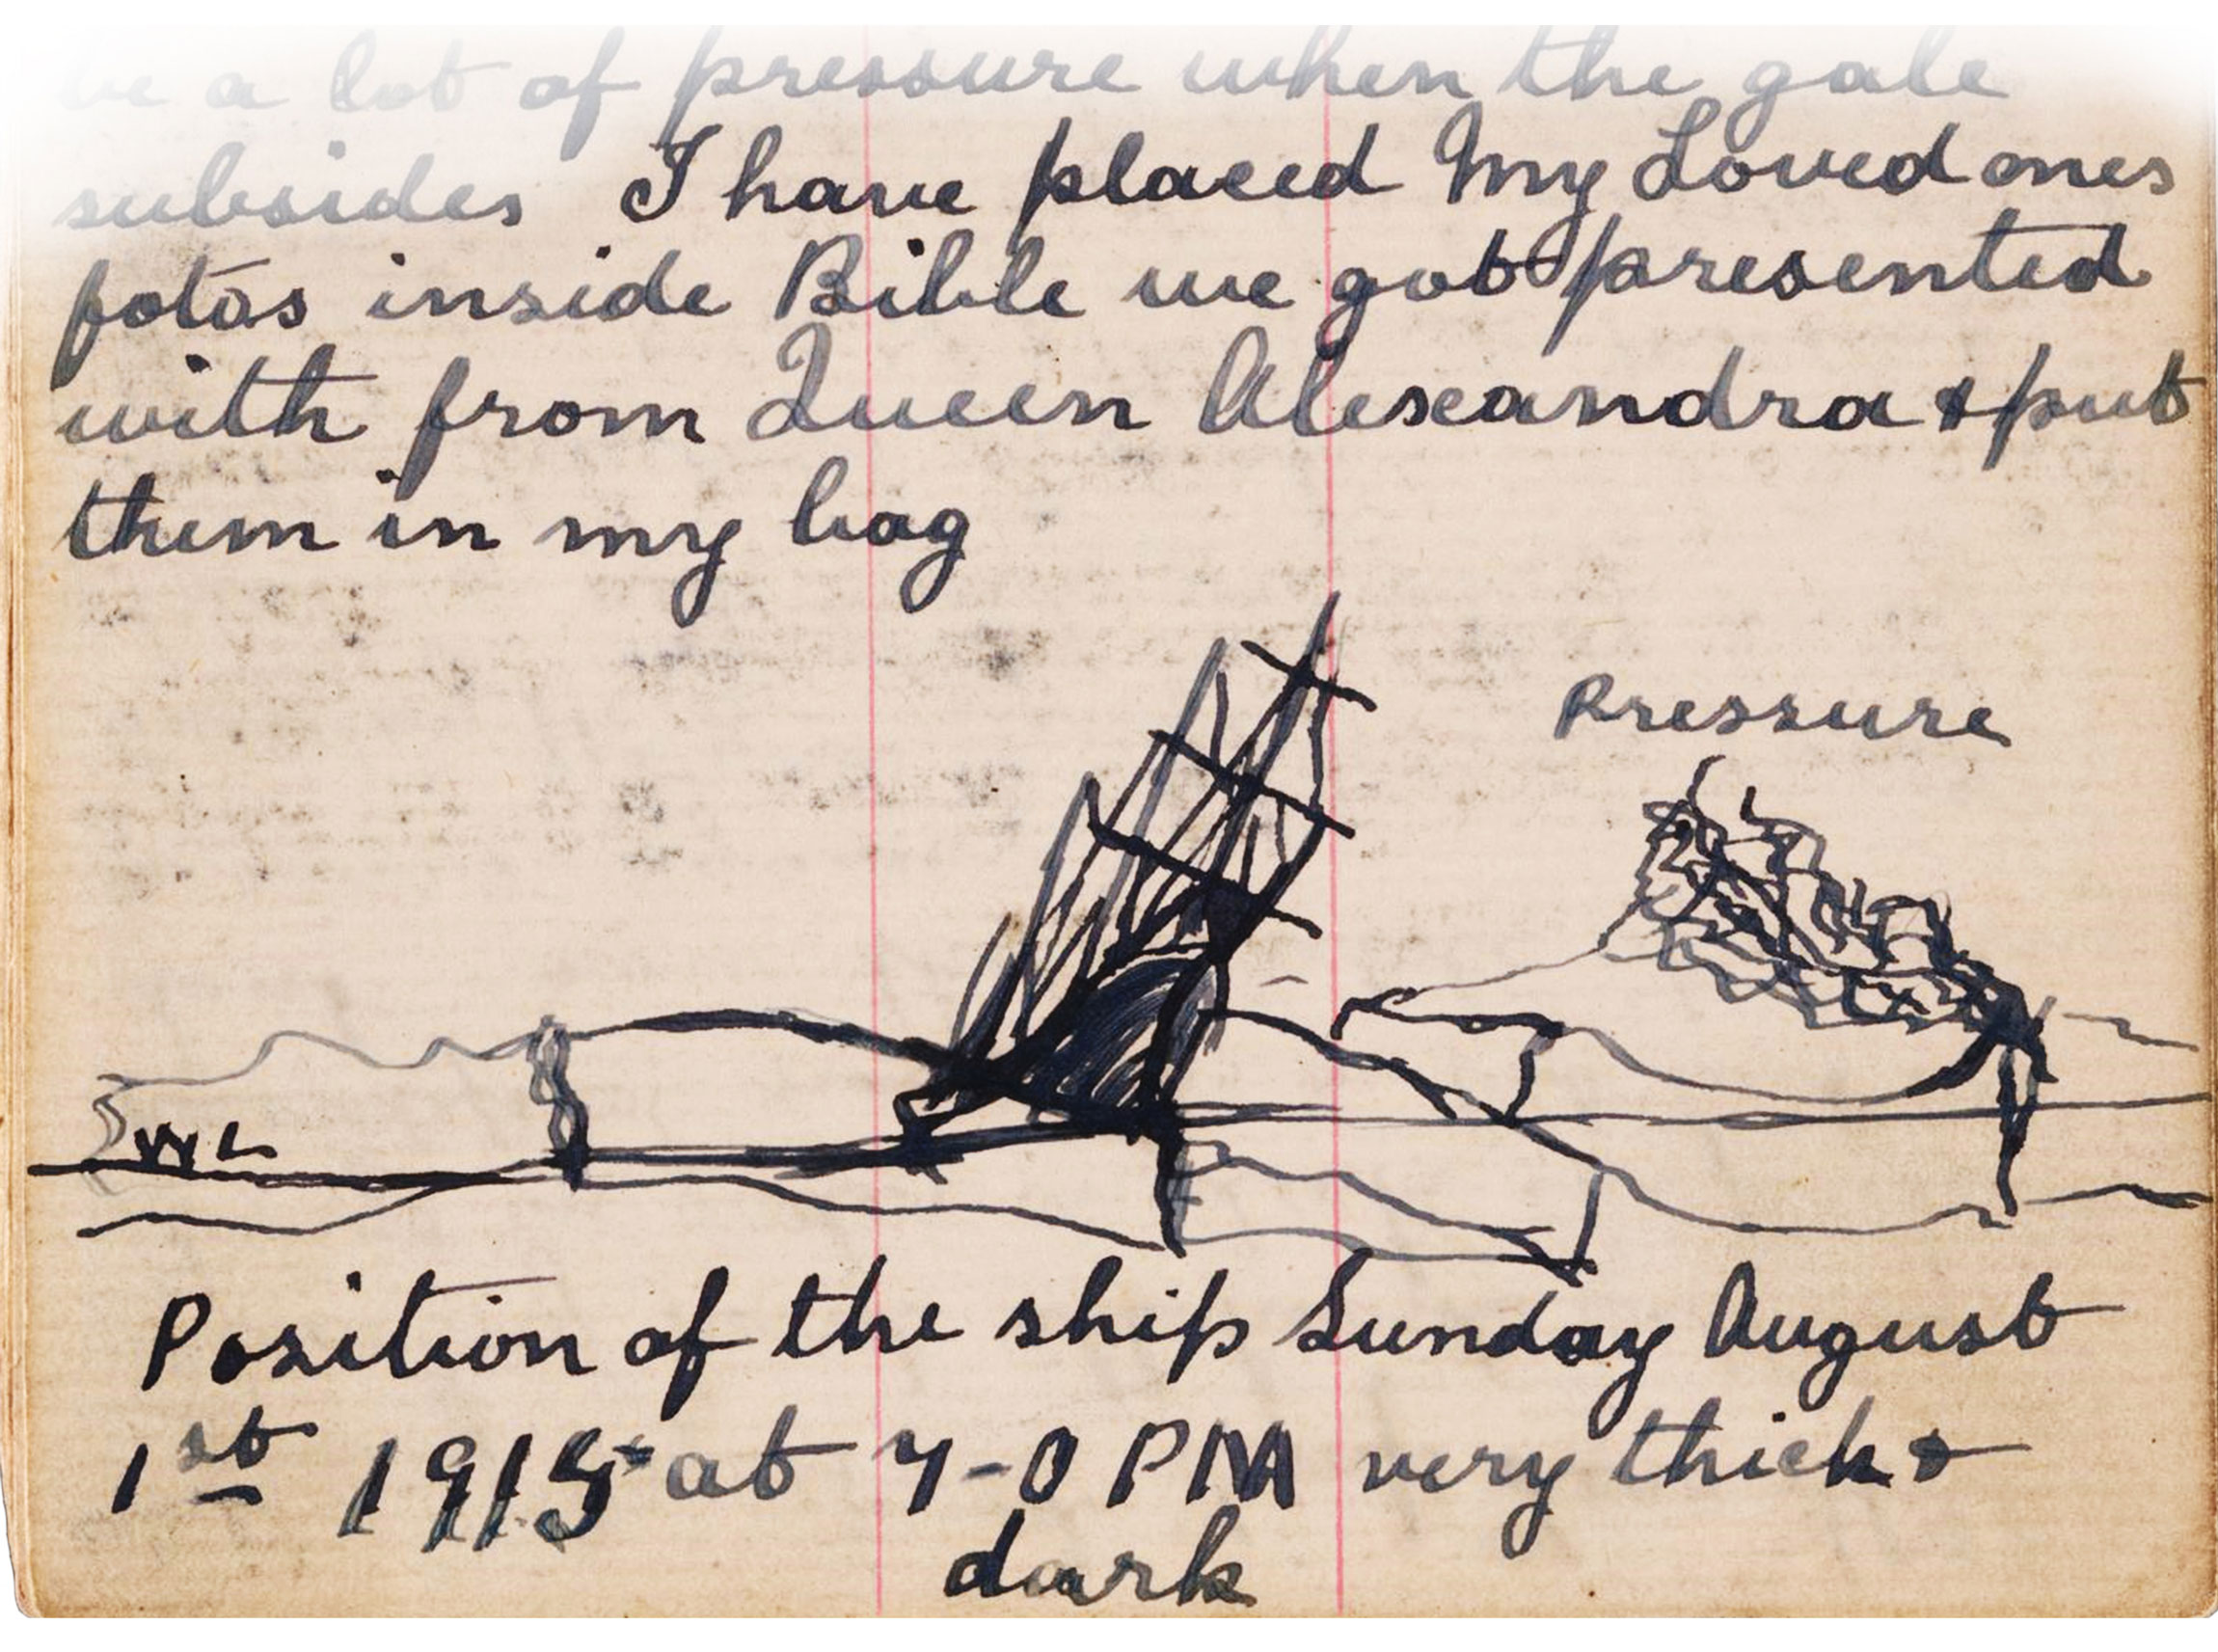 be a lot of pressure when the gale
subsides I have placed My Loved ones
fotos inside Bible we got presented
with from Queen Alexandra & put
them in my bag
Pressure
WL
Position of the ship Sunday August
1st 1915 at 7-0 PM very thick &
dark